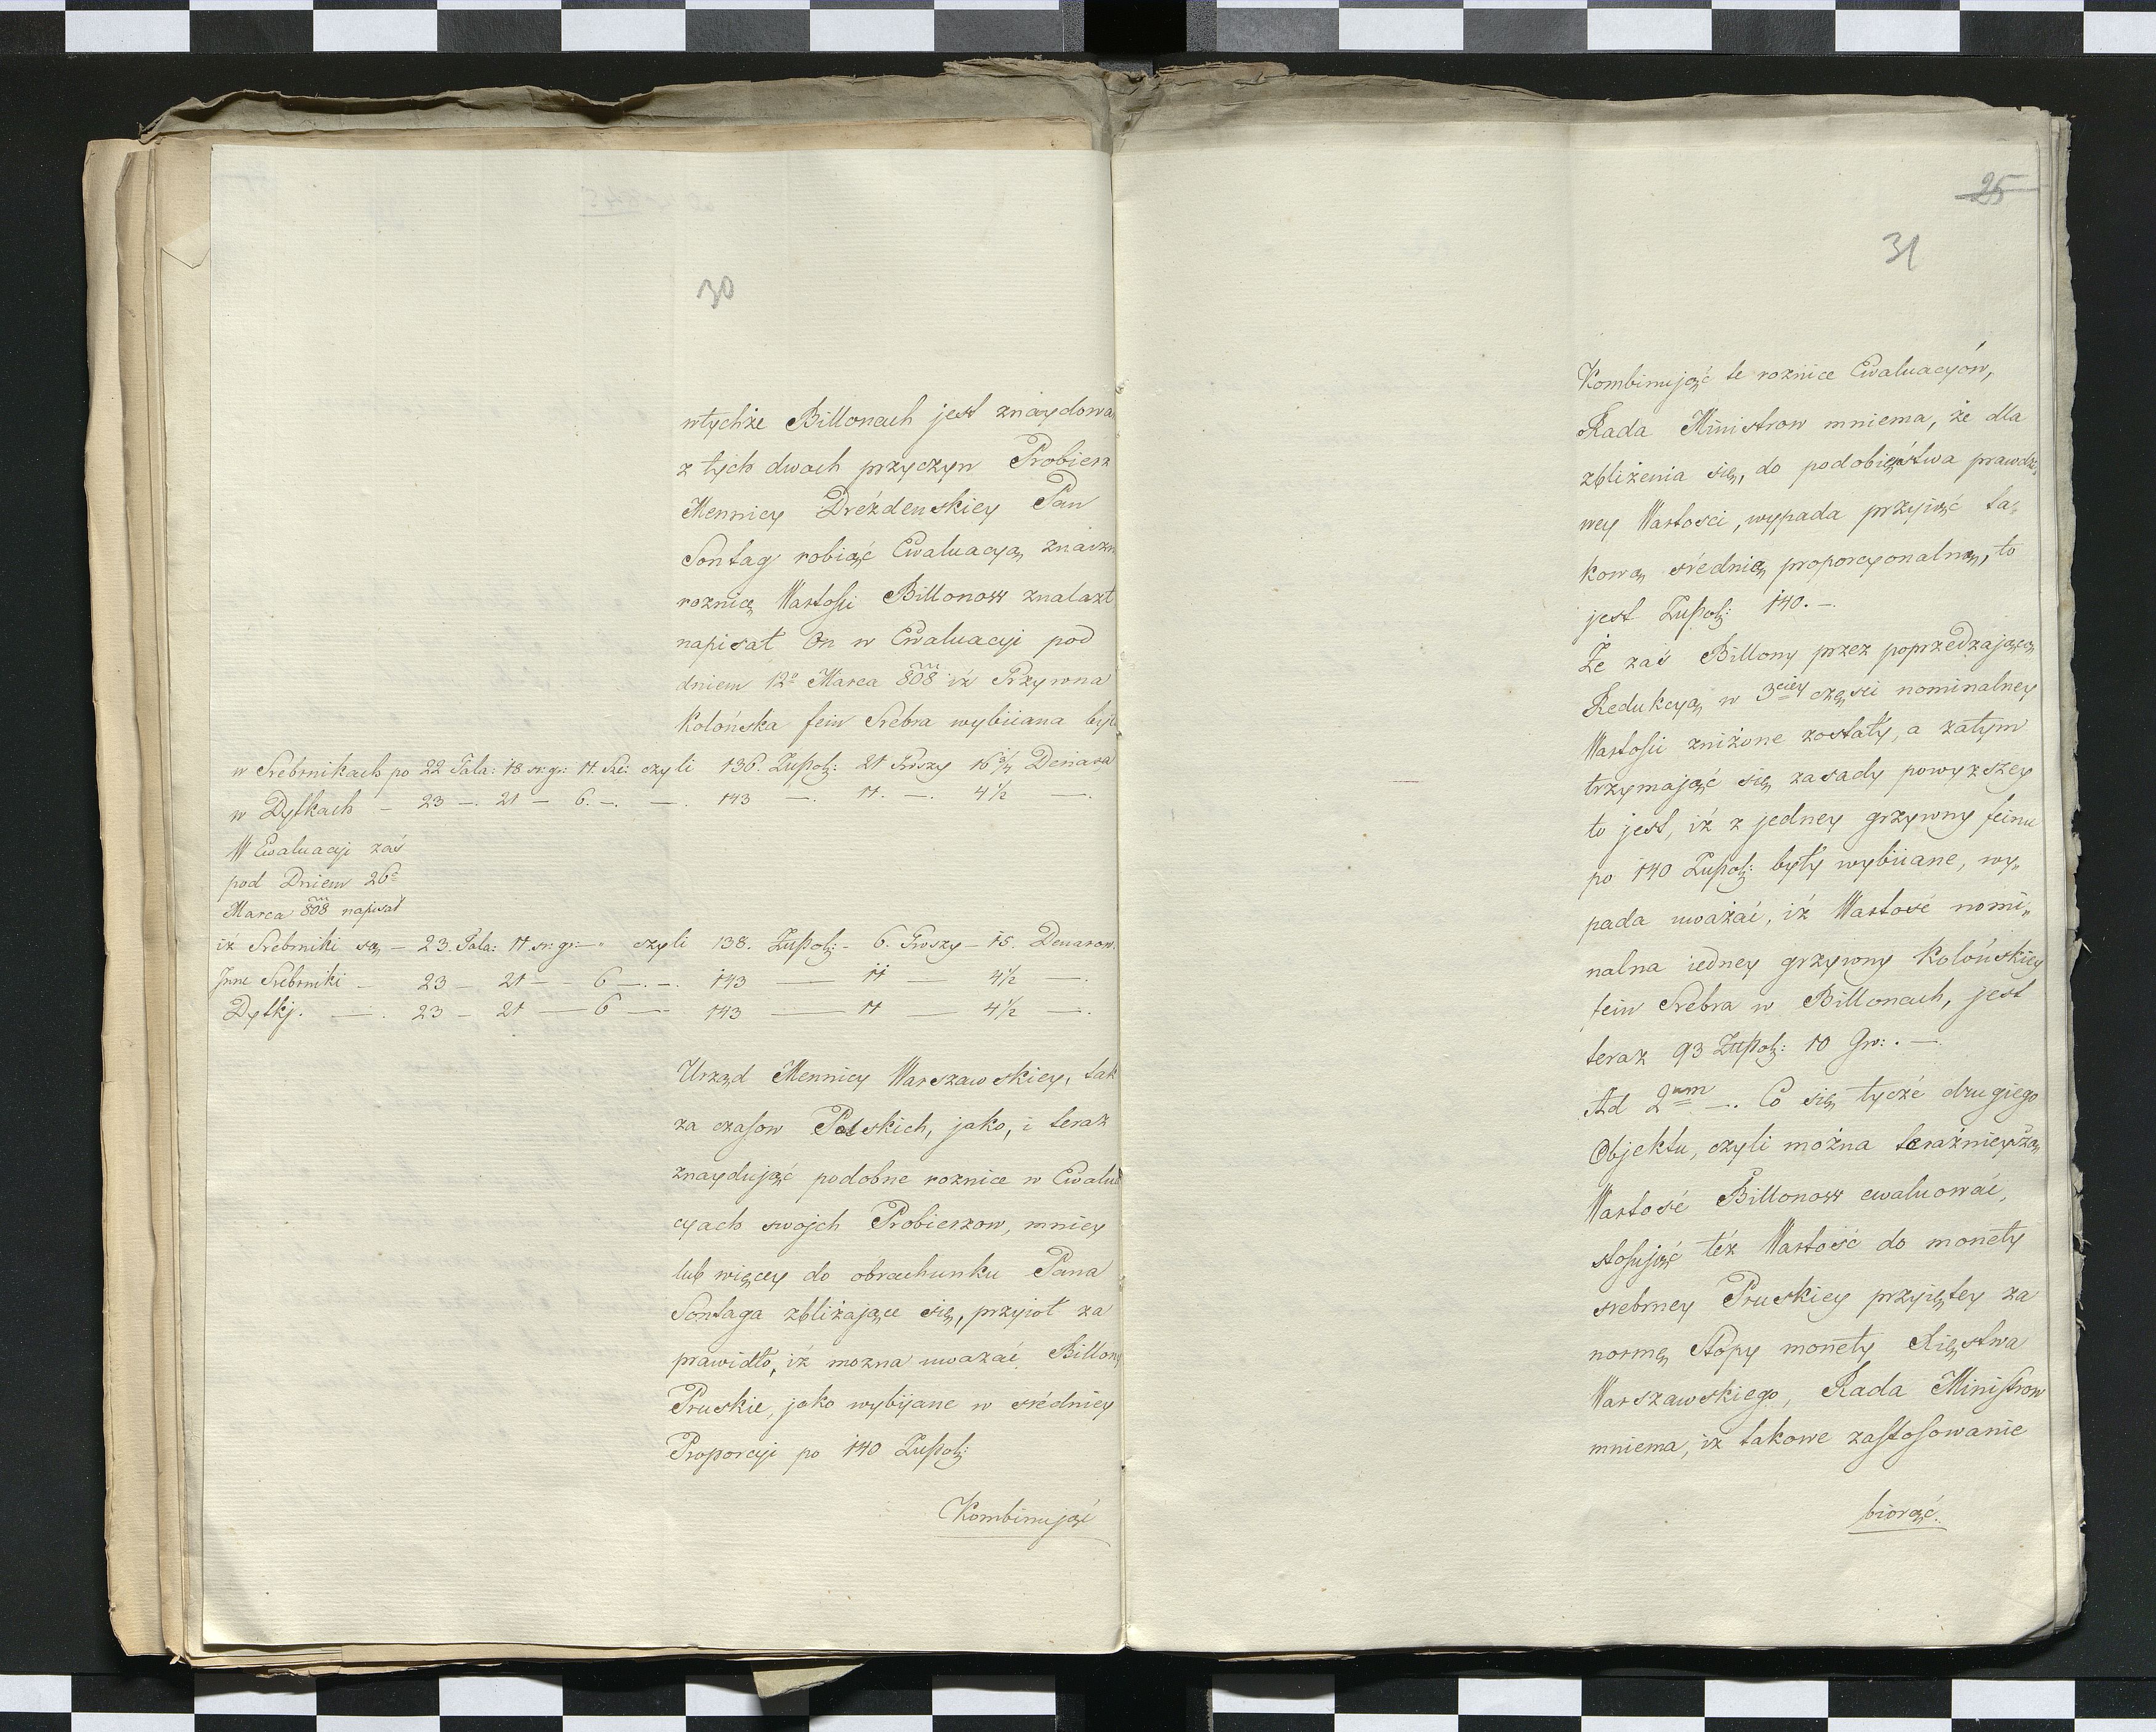 30
wtychże Billonach jest znaydowa
z tych dwoch przyczyn Probierz
Mennicy Dreźdenskiey Pan
Sontag robiąć Ewaluacyą znaczn
roznicę Wartości Billonow znalazł
napisał On w Ewaluacyi pod
dniem 12º Marca 808 iż Grzywna
Kolońska fein Srebra wybiiana był
w Srebrnikach po 22 Tala: 18 sr: gr: 11. Fe: czyli 136. Złpol: 21 Groszy 16 Denara
w Dytkach – 23 –. 21 – 6. –. –. 143 –. 11. –. 4½ –.
W Ewaluacyi zaś
pod Dniem 26º
Marca 808 napisał
iż Srebrniki są – 23. Tala: 11. sr: gr: – czyli 138. Złpol: – 6. Groszy – 15. Denarow.
Jnne Srebrniki – 23 – 21 – – 6 –. –. 143 – 11 – 4½ –.
Dytkj. –. 23 – 21 – 6 – 143 – 11 – 4½ –.
Urząd Mennicy Warszawskiey, tak
za czasow Polskich, jako, i teraz
znaydująć podobne roznice w Ewalua
cyach swojch Probierzow, mniey
lub więcey do obrachunku Pana
Sontaga zbliżające się, przyioł za
prawidło, iż mozna uwazać Billony
Pruskie, jako wybijane w średniey
Proporcyi po 140 Złpol:
Kombinująć
25
31
Kombinująć te roznice Ewaluacyów,
Rada Ministrow mniema, że dla
zbliżenia się, do podobięństwa prawdzi„
wey Wartosci, wypada przyiąć ta„
kową średnią proporcyonalną, to
jest Złpol: 140. –.
Że zaś Billony przez poprzedzającą
Redukcyą w 3ciey częsci nominalney
Wartości zniżone zostały, a zatym
trzymająć się zasady powyzszey
to jest, iż z jedney grzywny feinu
po 140 Złpol: były wybiiane, wy„
pada uważać, iż Wartość nomi„
nalna iedney grzywny Kolońskiey
fein Srebra w Billonach, jest
teraz 93 Złpol: 10 Gr: . –.
Ad 2um –. Co się tyczé drugiego
Objektu, czyli można teraźnieyszą
Wartość Billonow ewaluować,
stosująć téż Wartość do monety
srebrney Pruskiey przyiętey za
normę Stopy monety Xięstwa
Warszawskiego, Rada Ministrow
mniema, iz takowe zastosowanie
biorąć.